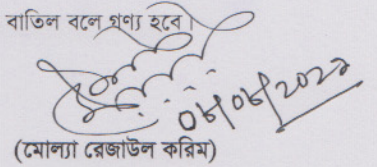 বাতিল বলে গ্রণ্য হবে।
০৮/০৮/২০২২
(মোল্যা রেজাউল করিম)